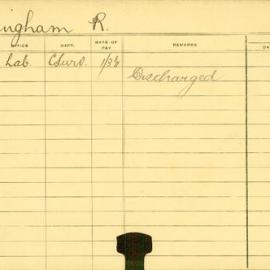 ingham R.
OFFICE DEPT. DATE OF PAY REMARKS
Lab. 1/36 Discharged